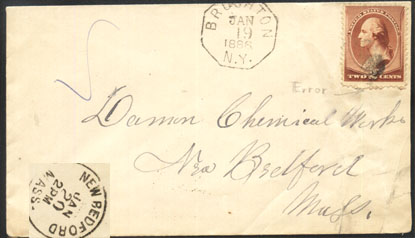 BROCKTON
JAN
19
1888
N.Y.
UNITED STATES POSTAGE
TWO CENTS
Error
Damon Chemical Works
New Bedford
Mass.
NEW BEDFORD
JAN
20
2PM
MASS.